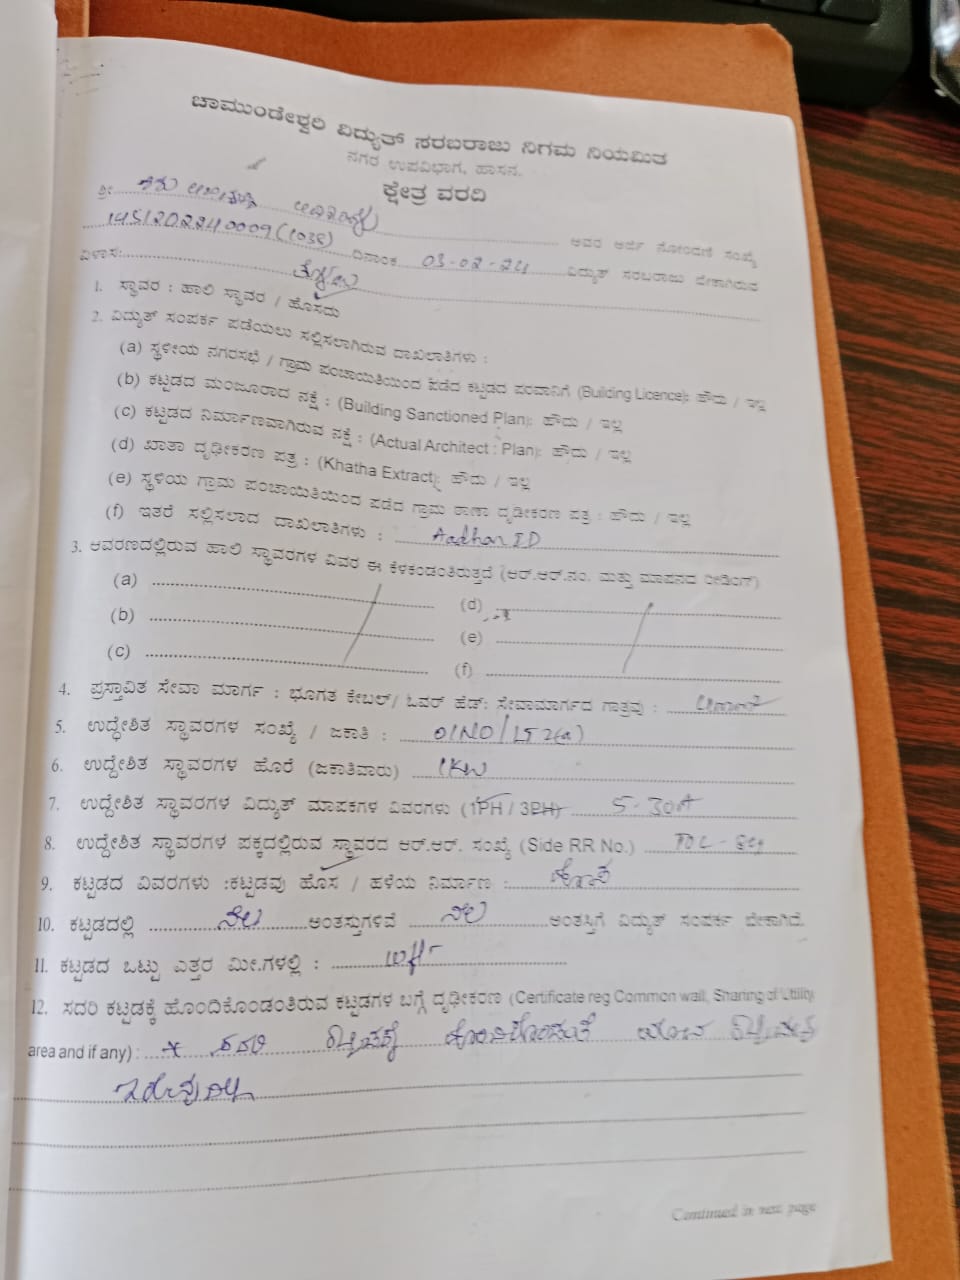 ಚಾಮುಂಡೇಶ್ವರಿ ವಿದ್ಯುತ್ ಸರಬರಾಜು ನಿಗಮ ನಿಯಮಿತ
ನಗರ ಉಪವಿಭಾಗ, ಹಾಸನ.
ಕ್ಷೇತ್ರ ವರದಿ
ಶ್ರೀ ಅವರ ಅರ್ಜಿ ನೋಂದಣಿ ಸಂಖ್ಯೆ
ದಿನಾಂಕ 03-02-24 ವಿದ್ಯುತ್ ಸರಬರಾಜು ಬೇಕಾಗಿರುವ
ವಿಳಾಸ:
1. ಸ್ಥಾವರ : ಹಾಲಿ ಸ್ಥಾವರ / ಹೊಸದು
2. ವಿದ್ಯುತ್ ಸಂಪರ್ಕ ಪಡೆಯಲು ಸಲ್ಲಿಸಲಾಗಿರುವ ದಾಖಲಾತಿಗಳು :
(a) ಸ್ಥಳೀಯ ನಗರಸಭೆ / ಗ್ರಾಮ ಪಂಚಾಯಿತಿಯಿಂದ ಪಡೆದ ಕಟ್ಟಡದ ಪರವಾನಿಗೆ (Building Licence): ಹೌದು / ಇಲ್ಲ
(b) ಕಟ್ಟಡದ ಮಂಜೂರಾದ ನಕ್ಷೆ : (Building Sanctioned Plan): ಹೌದು / ಇಲ್ಲ
(c) ಕಟ್ಟಡದ ನಿರ್ಮಾಣವಾಗಿರುವ ನಕ್ಷೆ : (Actual Architect : Plan): ಹೌದು / ಇಲ್ಲ
(d) ಖಾತಾ ದೃಢೀಕರಣ ಪತ್ರ : (Khatha Extract): ಹೌದು / ಇಲ್ಲ
(e) ಸ್ಥಳಿಯ ಗ್ರಾಮ ಪಂಚಾಯಿತಿಯಿಂದ ಪಡೆದ ಗ್ರಾಮ ಠಾಣಾ ದೃಡೀಕರಣ ಪತ್ರ : ಹೌದು / ಇಲ್ಲ
(f) ಇತರೆ ಸಲ್ಲಿಸಲಾದ ದಾಖಲಾತಿಗಳು : Aadhar ID
3. ಆವರಣದಲ್ಲಿರುವ ಹಾಲಿ ಸ್ಥಾವರಗಳ ವಿವರ ಈ ಕೆಳಕಂಡಂತಿರುತ್ತದೆ (ಆರ್.ಆರ್.ನಂ. ಮತ್ತು ಮಾಪನದ ರೀಡಿಂಗ್)
(a) (d)
(b) (e)
(c) (f)
4. ಪ್ರಸ್ತಾವಿತ ಸೇವಾ ಮಾರ್ಗ : ಭೂಗತ ಕೇಬಲ್/ ಓವರ್ ಹೆಡ್: ಸೇವಾಮಾರ್ಗದ ಗಾತ್ರವು :
5. ಉದ್ದೇಶಿತ ಸ್ಥಾವರಗಳ ಸಂಖ್ಯೆ / ಜಕಾತಿ : 01NO/LT2(a)
6. ಉದ್ದೇಶಿತ ಸ್ಥಾವರಗಳ ಹೊರೆ (ಜಕಾತಿವಾರು) 1KW
7. ಉದ್ದೇಶಿತ ಸ್ಥಾವರಗಳ ವಿದ್ಯುತ್ ಮಾಪಕಗಳ ವಿವರಗಳು (1PH / 3PH) 5-30A
8. ಉದ್ದೇಶಿತ ಸ್ಥಾವರಗಳ ಪಕ್ಕದಲ್ಲಿರುವ ಸ್ಥಾವರದ ಆರ್.ಆರ್. ಸಂಖ್ಯೆ (Side RR No.)
9. ಕಟ್ಟಡದ ವಿವರಗಳು :ಕಟ್ಟಡವು ಹೊಸ / ಹಳೆಯ ನಿರ್ಮಾಣ : ಹೊಸ
10. ಕಟ್ಟಡದಲ್ಲಿ ನೆಲ ಅಂತಸ್ತುಗಳಿವೆ ನೆಲ ಅಂತಸ್ತಿಗೆ ವಿದ್ಯುತ್ ಸಂಪರ್ಕ ಬೇಕಾಗಿದೆ.
11. ಕಟ್ಟಡದ ಒಟ್ಟು ಎತ್ತರ ಮೀ.ಗಳಲ್ಲಿ : 10ft
12. ಸದರಿ ಕಟ್ಟಡಕ್ಕೆ ಹೊಂದಿಕೊಂಡಂತಿರುವ ಕಟ್ಟಡಗಳ ಬಗ್ಗೆ ದೃಢೀಕರಣ (Certificate reg Common wall, Sharing of Utility
area and if any) : * ಸದರಿ ಕಟ್ಟಡಕ್ಕೆ ಹೊಂದಿಕೊಂಡಂತೆ ಯಾವ ಕಟ್ಟಡವೂ
ಇರುವುದಿಲ್ಲ
Continued in next page